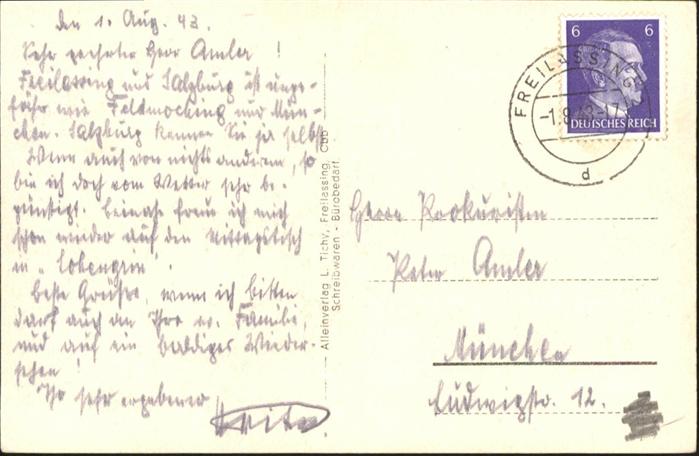 den 1. Aug. 43.
Sehr geehrter Herr Amler !
Freilassing und Salzburg ist unge-
fähr wie Feldmoching und Mün-
chen. Salzburg kennen Sie ja selbst.
Wenn auch von nichts anderem, so
bin ich doch vom Wetter sehr be-
günstigt. Beinahe freue ich mich
schon wieder auf den Mittagstisch
in „Lohengrin".
Beste Grüße, wenn ich bitten
darf auch an Ihre w. Familie,
und auf ein baldiges Wieder-
sehen!
Ihr sehr ergebener
Alleinverlag L. Tichy, Freilassing, Obb
Schreibwaren - Bürobedarf.
6 6
DEUTSCHES REICH
FREILASSING
-1.8.43-17
d
Herrn Prokuristen
Peter Amler
München
Ludwigstr. 12.